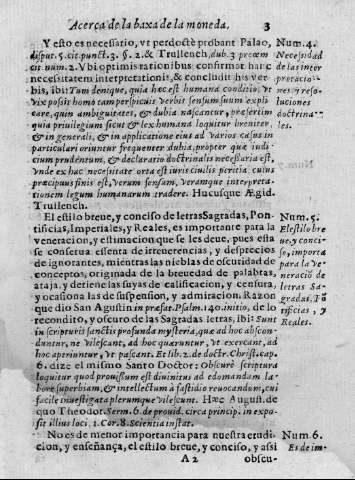 Acerca de la baxa de la moneda. 3
Y esto es necessario, vt perdoctè probant Palao,
disput. 5. cit. punct. 3. §. 2. & Trullench, dub. 3. proem
cit. num. 2. Vbi optimis rationibus confirmat hanc
necessitatem interpretationis, & concludit his ver-
bis, ibi: Tum denique, quia hæc est humana conditio, vt
vix possit homo tam perspicuis verbis sensum suum expli
care, quin ambiguitates, & dubia nascantur, præsertim
quia priuilegium sicut & lex humana loquitur breuiter,
& in generali, & in applicatione eius ad varios casus in
particulari oriuntur frequenter dubia, propter quæ iudi-
cium prudentum, & declaratio doctrinalis necessaria est,
Vnde ex hac necessitate orta est iuris ciuilis peritia, cuius
præcipuus finis est, verum sensum, veramque interpreta-
tionem legum humanarum tradere. Hucusque Ægid.
Trullench.
Num. 4.
Necesidad
de las inter
pretacio-
nes y reso-
luciones
doctrina-
les.
El estilo breue, y conciso de letras Sagradas, Pon-
tificias, Imperiales, y Reales, es importante para la
veneracion, y estimacion que se les deue, pues esta
se conserua essenta de irreuerencias, y desprecios
de ignorantes, mientras las nieblas de oscuridad de
conceptos, originada de la breuedad de palabras,
ataja, y detiene las suyas de calificacion, y censura,
y ocasiona las de suspension, y admiracion. Razon
que dio San Agustin in præfat. Psalm. 140. initio, de lo
recondito, y oscuro de las Sagradas letras, ibi: Sunt
in scripturis sanctis profunda mysteria, quæ ad hoc abscon-
duntur, ne vilescant, ad hoc quæruntur, vt exercant, ad
hoc aperiuntur, vt pascant. Et lib. 2. de doctr. Christ. cap.
6. dize el mismo Santo Doctor: Obscurè scriptura
loquitur quod prouissum est diuinitus ad edomandam la-
bore superbiam, & intellectum à fastidio reuocandum, cui
facile inuestigata plerumque vilescunt. Hæc August. de
quo Theodor. Serm. 6. de prouid. circa princip. in expo-
sit illius loci. 1. Cor. 8. Scientia instat.
Num. 5.
El estilo bre
ue, y conci-
so, importa
para la ve-
neració de
letras Sa-
gradas, Pó
tificias, y
Reales.
No es de menor importancia para nuestra erudi-
cion, y enseñança, el estilo breue, y conciso, y assi
Num. 6.
Es de im-
A 2 obscu-